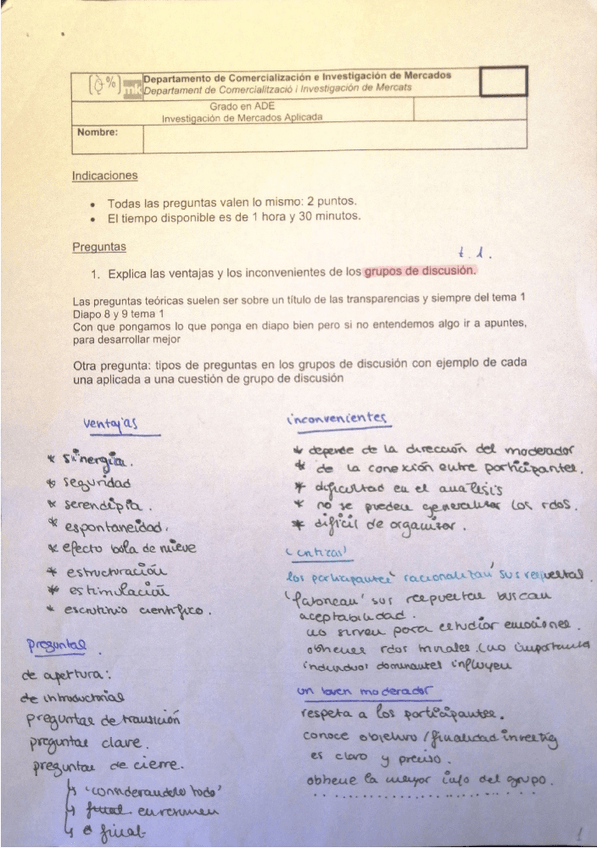 Departamento de Comercialización e Investigación de Mercados
mk Departament de Comercialització i Investigación de Mercats
Grado en ADE
Investigación de Mercados Aplicada
Nombre:
Indicaciones
• Todas las preguntas valen lo mismo: 2 puntos.
• El tiempo disponible es de 1 hora y 30 minutos.
Preguntas
t. 1.
1. Explica las ventajas y los inconvenientes de los grupos de discusión.
Las preguntas teóricas suelen ser sobre un título de las transparencias y siempre del tema 1
Diapo 8 y 9 tema 1
Con que pongamos lo que ponga en diapo bien pero si no entendemos algo ir a apuntes,
para desarrollar mejor
Otra pregunta: tipos de preguntas en los grupos de discusión con ejemplo de cada
una aplicada a una cuestión de grupo de discusión
ventajas
* sinergia.
* seguridad
* serendipia.
* espontaneidad.
* efecto bola de nieve
* estructuración
* estimulación
* escrutinio científico.
Preguntas
de apertura:
de introductorias
preguntas de transición
preguntas clave.
preguntas de cierre.
↳ 'considerandolo todo'
↳ en resumen
↳ final
inconvenientes
* depende de la dirección del moderador
* de la conexión entre participantes.
* dificultad en el analisis
* no se pueden generalizar los rdos.
* dificil de organizar.
'criticas'
los participantes 'racionalizan' sus respuestas.
sus respuestas buscan
aceptabilidad.
no sirven para estudiar emociones.
obtienes rdos triviales (no importantes
individuos dominantes influyen
un buen moderador
respeta a los participantes.
conoce objetivo/finalidad investig
es claro y preciso.
obtiene la mayor info del grupo.